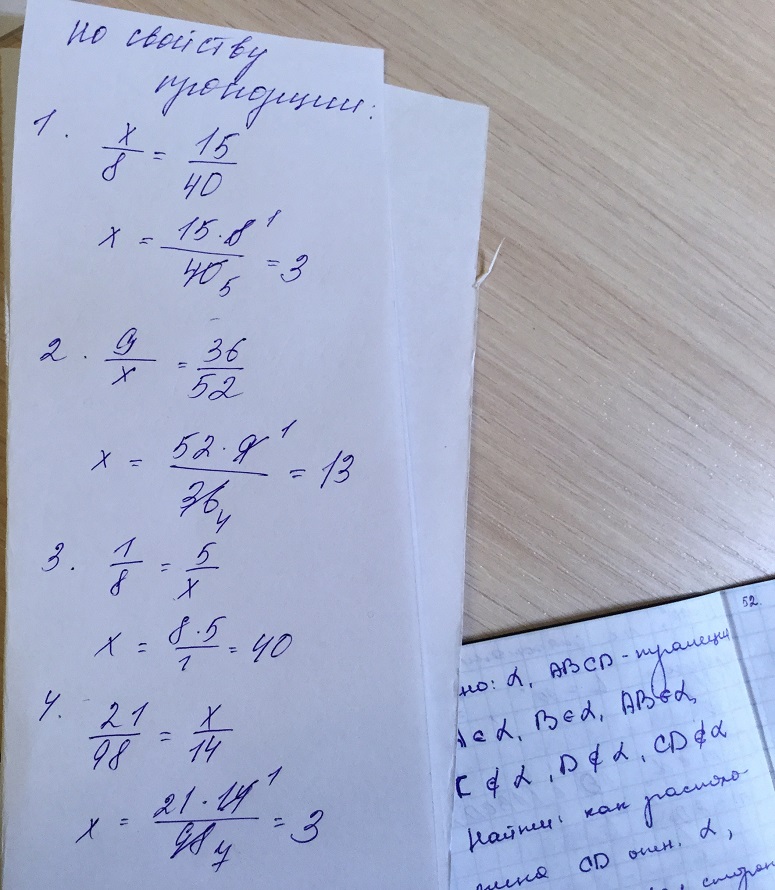 по свойству
пропорции:
1. x/8 = 15/40
x = 15·8 1/40 5 = 3
2. 9/x = 36/52
x = 52·9 1/36 4 = 13
3. 1/8 = 5/x
x = 8·5/1 = 40
4. 21/98 = x/14
x = 21·14 1/98 7 = 3
52.
но: α, ABCD - трапеция
A∈α, B∈α, AB∈α,
C∉α, D∉α, CD∉α
Найти: как располо-
жена CD отн. α,